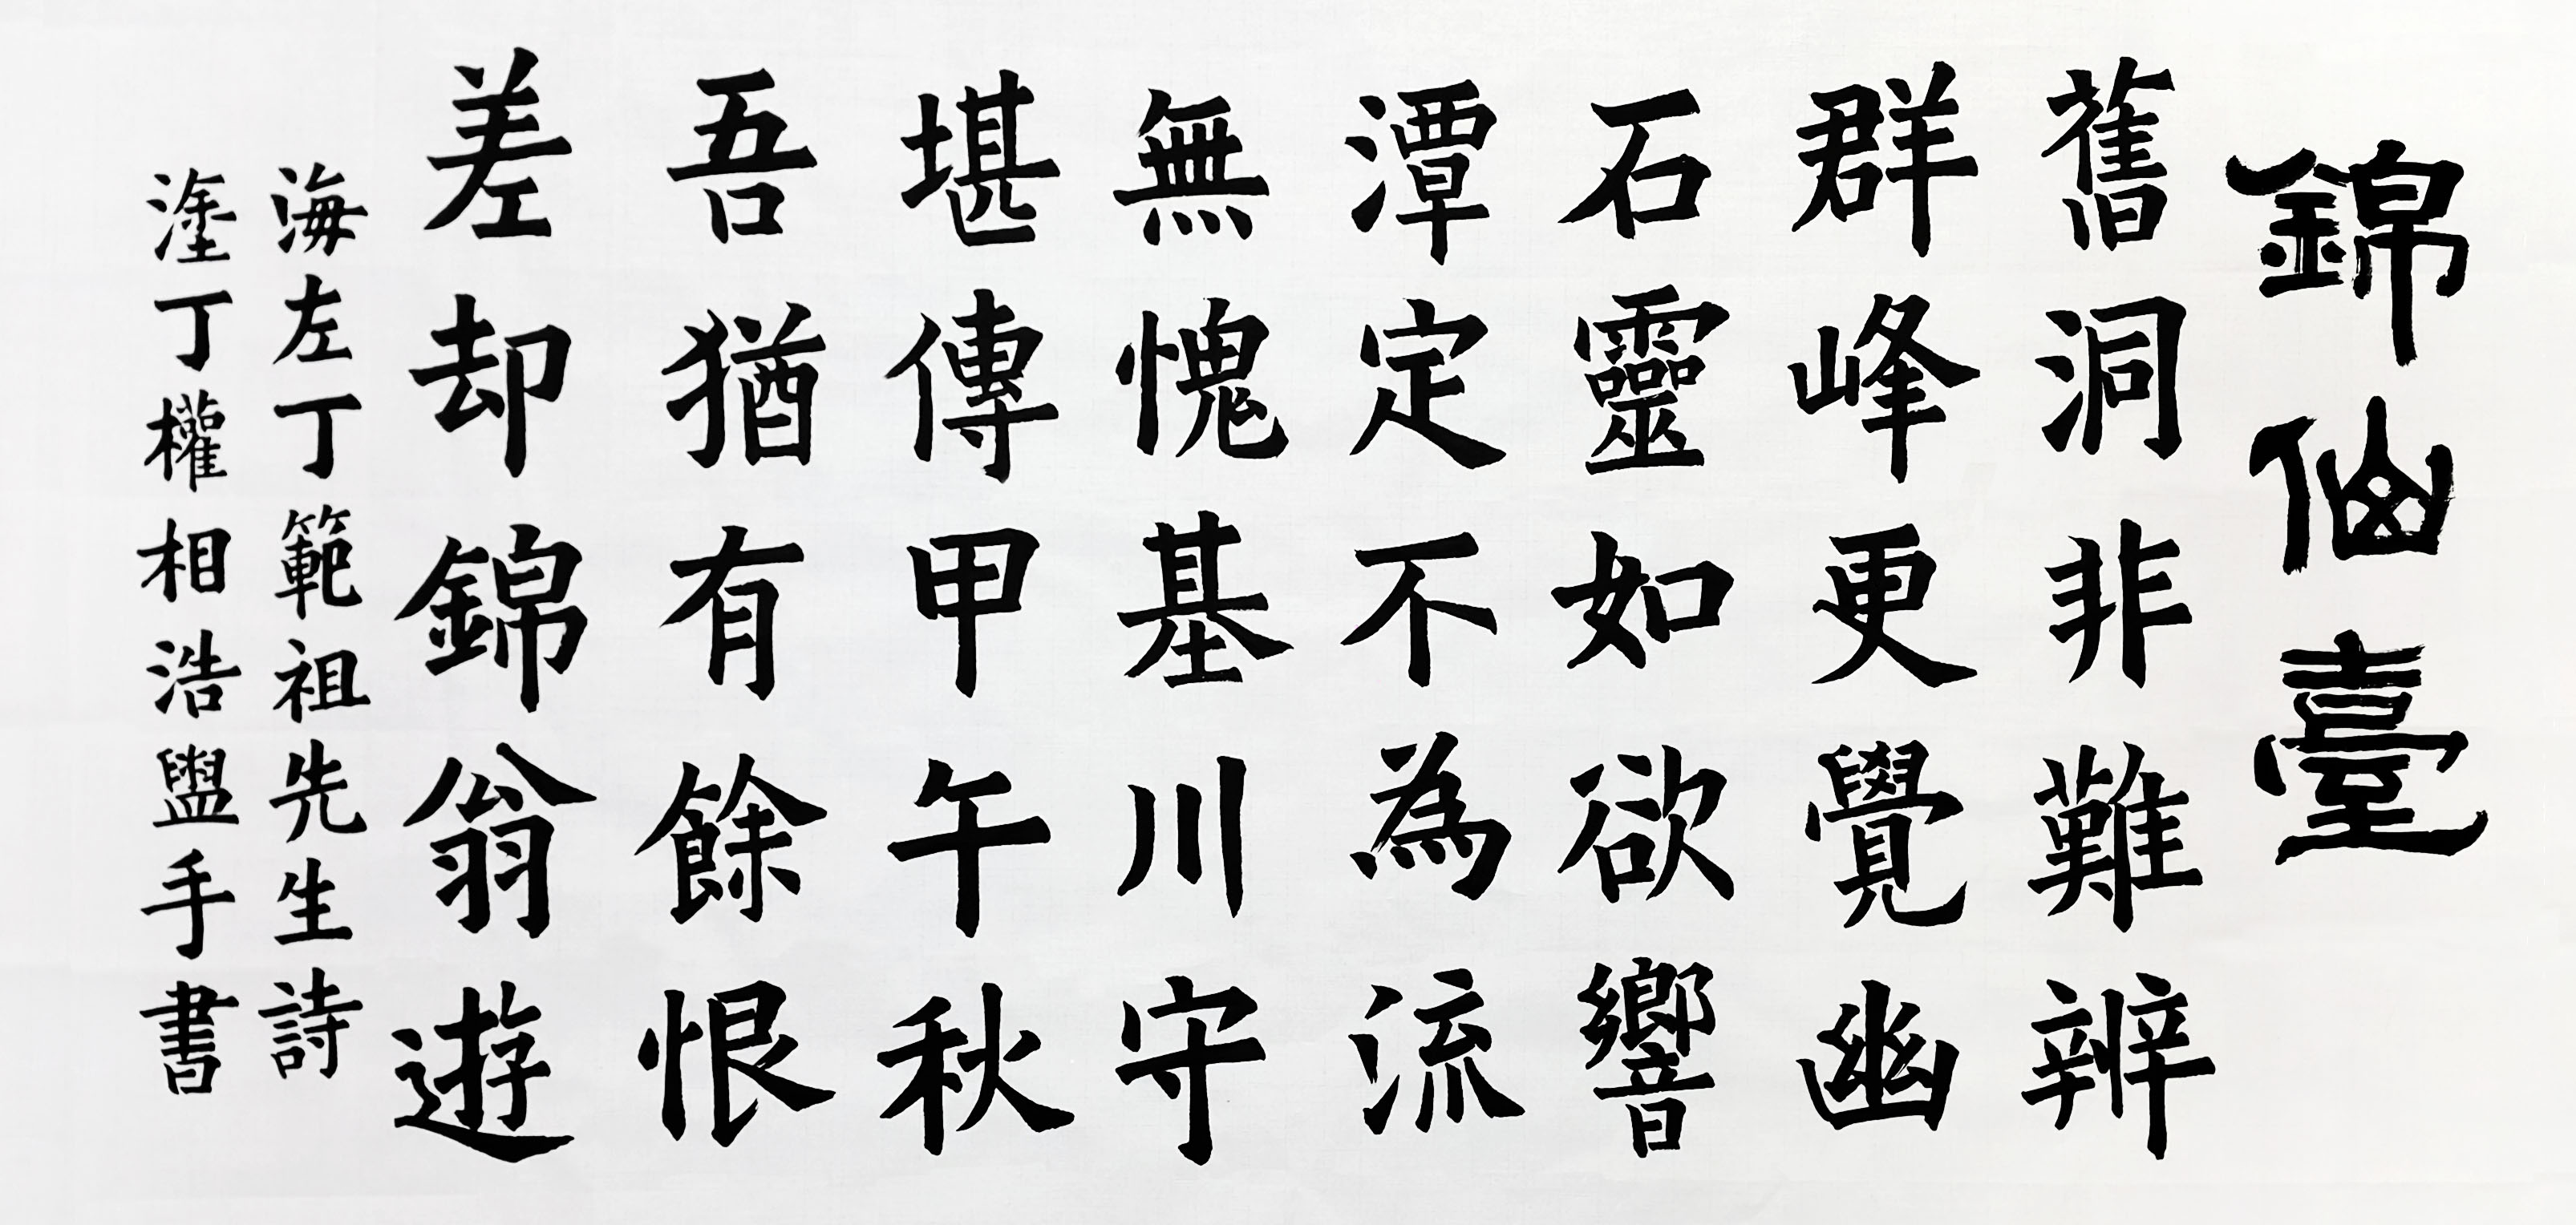 錦仙臺
舊洞非難辨
群峰更覺幽
石靈如欲響
潭定不為流
無愧基川守
堪傳甲午秋
吾猶有餘恨
差却錦翁遊
海左丁範祖先生詩
塗丁權相浩盥手書